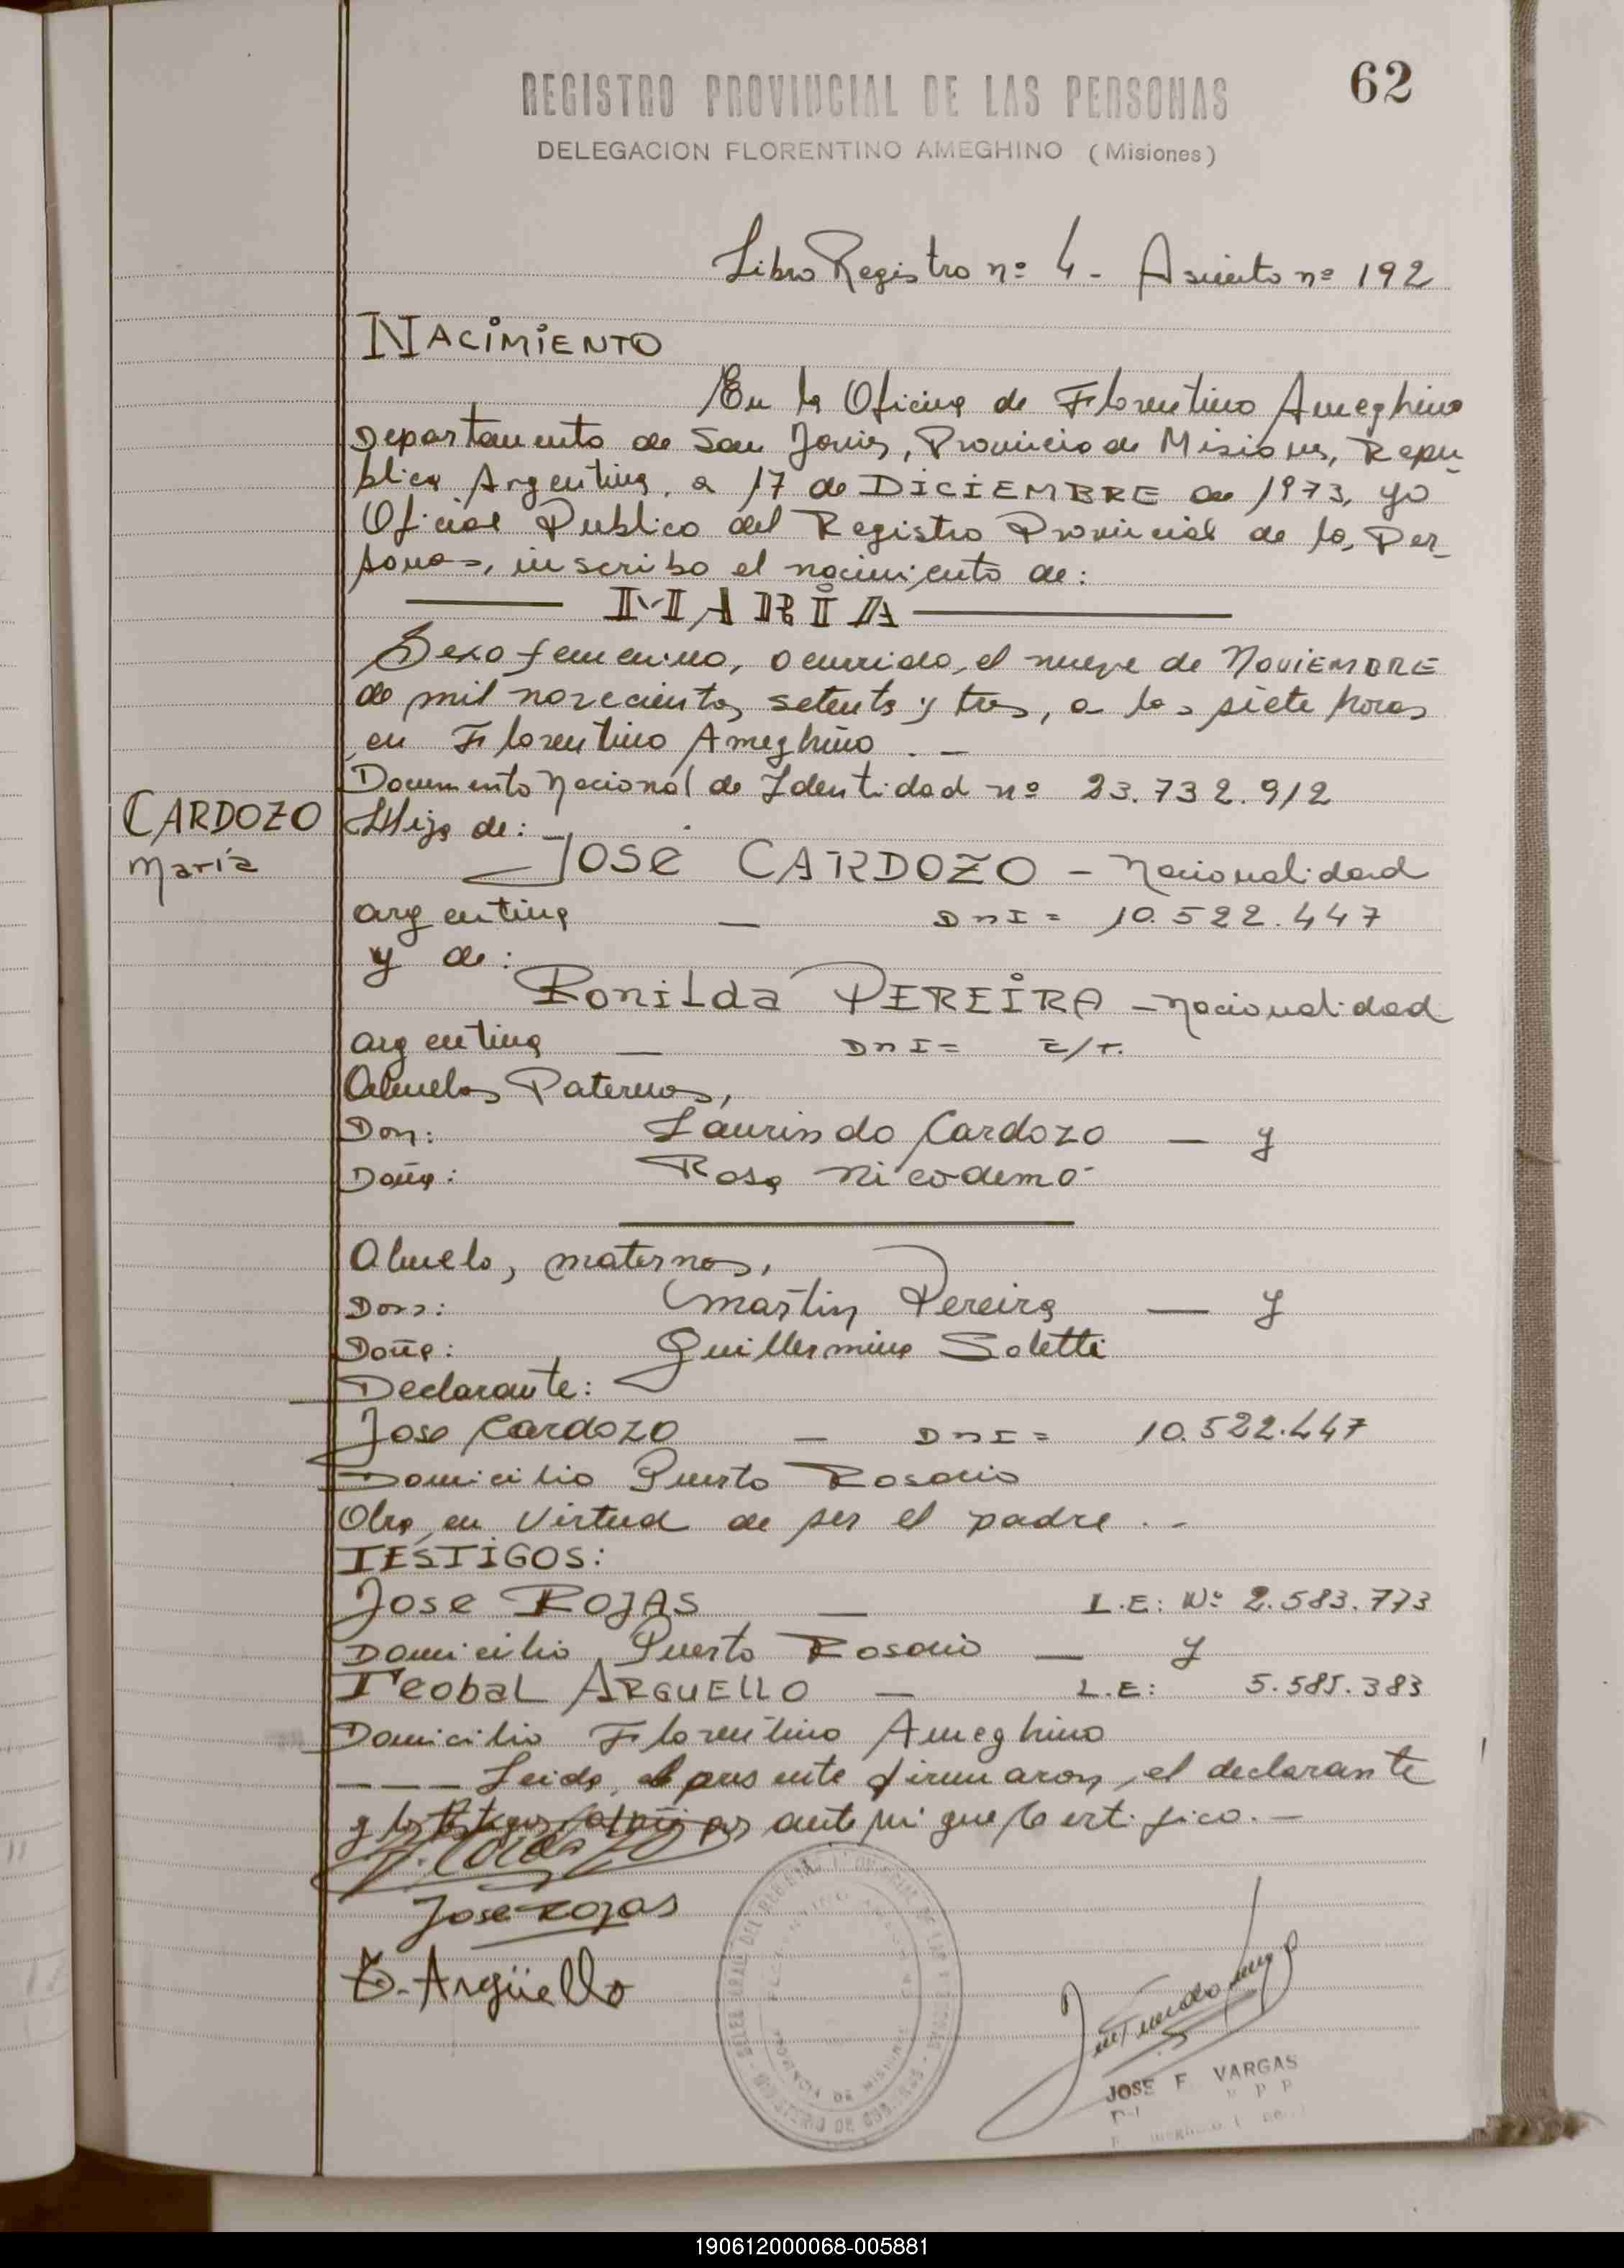 62
REGISTRO PROVINCIAL DE LAS PERSONAS
DELEGACION FLORENTINO AMEGHINO (Misiones)
Libro Registro nº 4 - Asiento nº 192
NACIMIENTO
En la Oficina de Florentino Ameghino
Departamento de San Javier, Provincia de Misiones, Repu-
blica Argentina, a 17 de DICIEMBRE de 1973, yo
Oficial Publico del Registro Provincial de las Per-
sonas, inscribo el nacimiento de:
MARIA
Sexo femenino, ocurrido, el nueve de NOVIEMBRE
de mil novecientos setenta y tres, a las siete horas
en Florentino Ameghino . -
Documento Nacional de Identidad nº 23.732.912
CARDOZO
María
Hija de: -
JOSE CARDOZO - Nacionalidad
argentina - DNI = 10.522.447
y de:
Ronilda PEREIRA - Nacionalidad
argentina - DNI = E/T.
Abuelos Paternos,
Don: Laurindo Cardozo - y
Doña: Rosa Nicodemo
Abuelos, maternos,
Don: Martin Pereira - y
Doña: Guillermina Soletti
Declarante:
Jose Cardozo - DNI = 10.522.447
Domicilio Puerto Rosario
Obra en virtud de ser el padre . -
TESTIGOS:
Jose ROJAS - L.E: Nº 2.583.773
Domicilio Puerto Rosario - y
Teobal ARGUELLO - L.E: 5.585.383
Domicilio Florentino Ameghino
- - - Leida, el presente firmaron, el declarante
y los testigos ante mi que certifico. -
J. Cardozo
Jose Rojas
T. Argüello
JOSE F. VARGAS
190612000068-005881